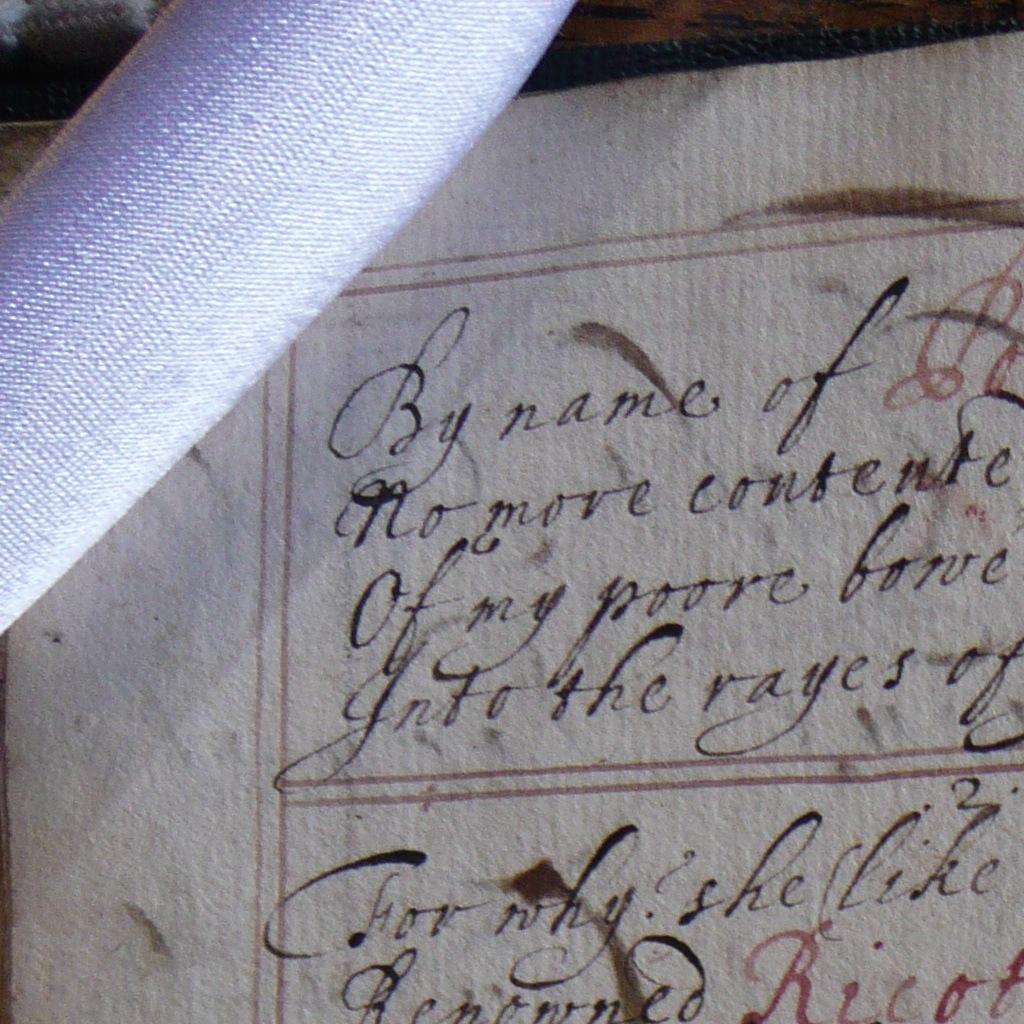 By name of
No more contente
Of my poore bowe
Into the rayes of
.2.
For why? she (like
Renowned Ricot